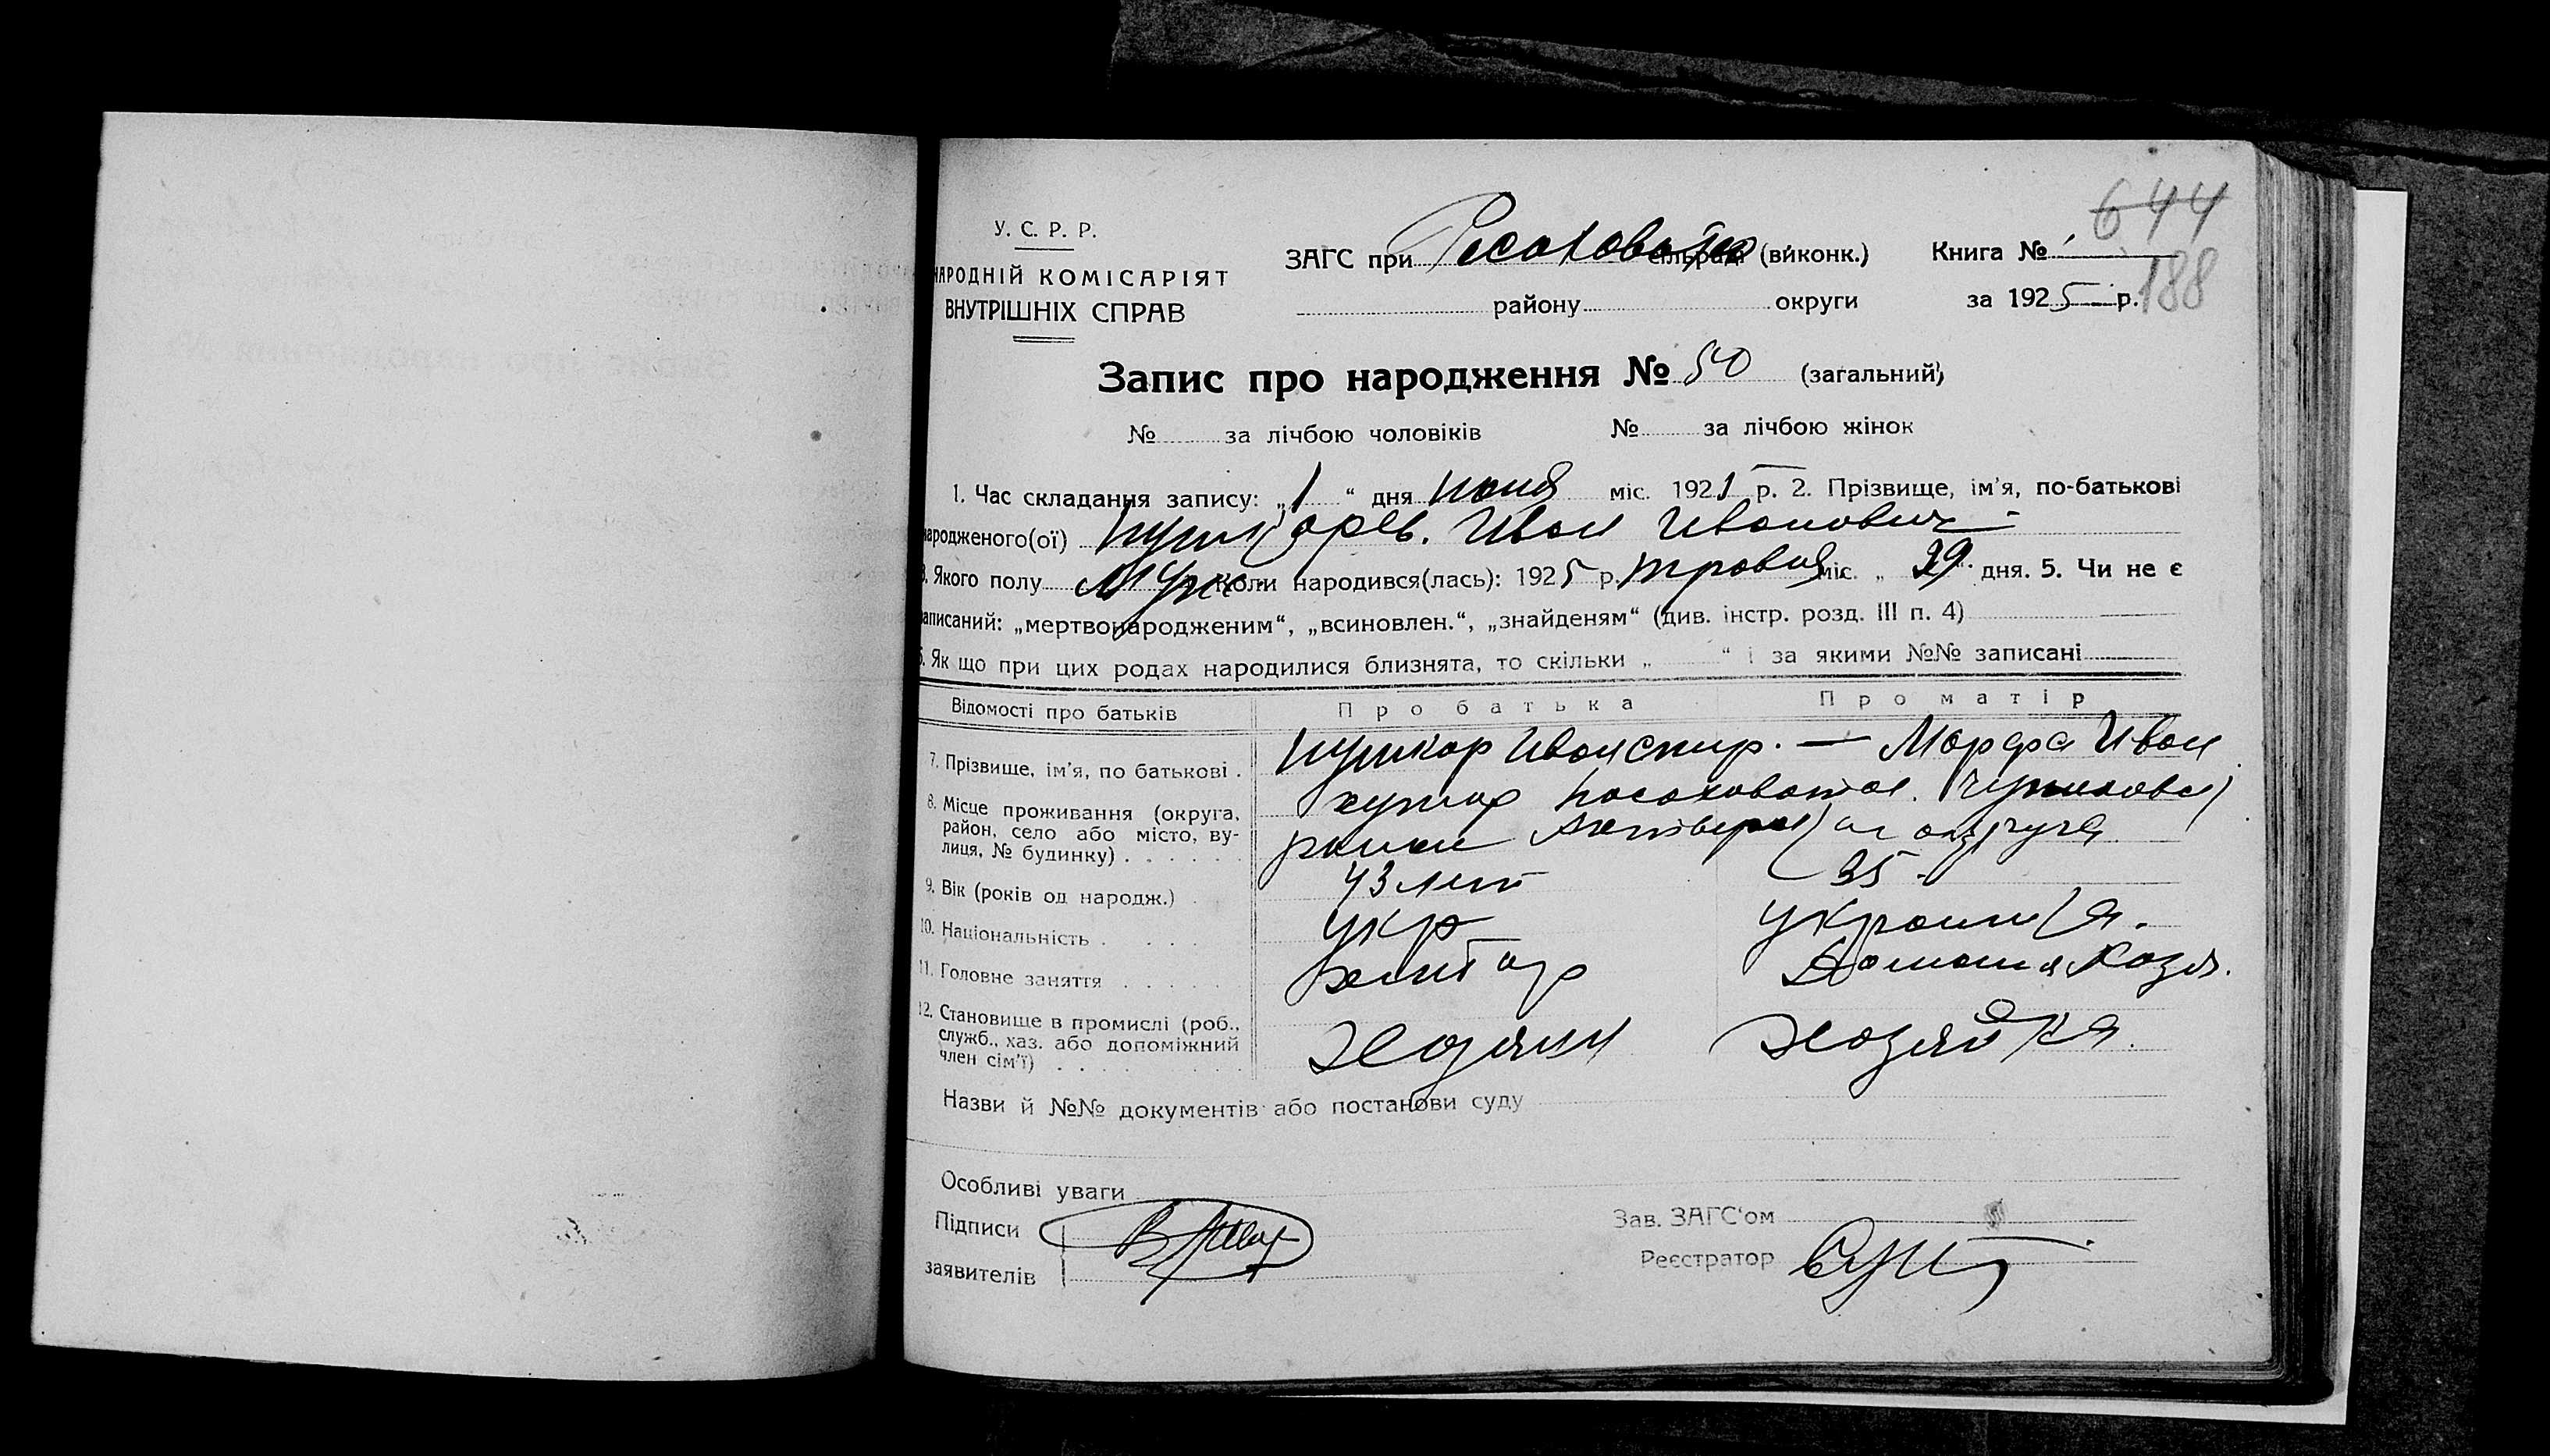 644
188
У. С. Р. Р.
НАРОДНІЙ КОМІСАРІЯТ
ВНУТРІШНІХ СПРАВ
ЗАГС при сільраді (виконк.) Книга №
району округи за 1925 р.
Запис про народження № 50 (загальний)
№ за лічбою чоловіків № за лічбою жінок
1. Час складання запису: „1“ дня июня міс. 1925 р. 2. Прізвище, ім'я, по-батькові
народженого(ої) Иван Иванович
3. Якого полу Муж. Коли народився(лась): 1925 р. травня міс. „29“ дня. 5. Чи не є
записаний: „мертвонародженим“, „всиновлен.“, „знайденям“ (див. інстр. розд. III п. 4)
6. Як що при цих родах народилися близнята, то скільки „ “ і за якими №№ записані
Відомості про батьків Про батька Про матір
7. Прізвище, ім'я, по батькові . Пушкар Иван Спир. — Марфа Иван
8. Місце проживання (округа, район, село або місто, вулиця, № будинку) . . . . . . хутор
район округа
9. Вік (років од народж.) . 43 лет 35
10. Національність . . . . укр украинка.
11. Головне заняття . . . . . Домашня хозя.
12. Становище в промислі (роб., служб., хаз. або допоміжний член сім'ї) . . . . хозяйка.
Назви й №№ документів або постанови суду
Особливі уваги
Підписи
заявителів
Зав. ЗАГС'ом
Реєстратор